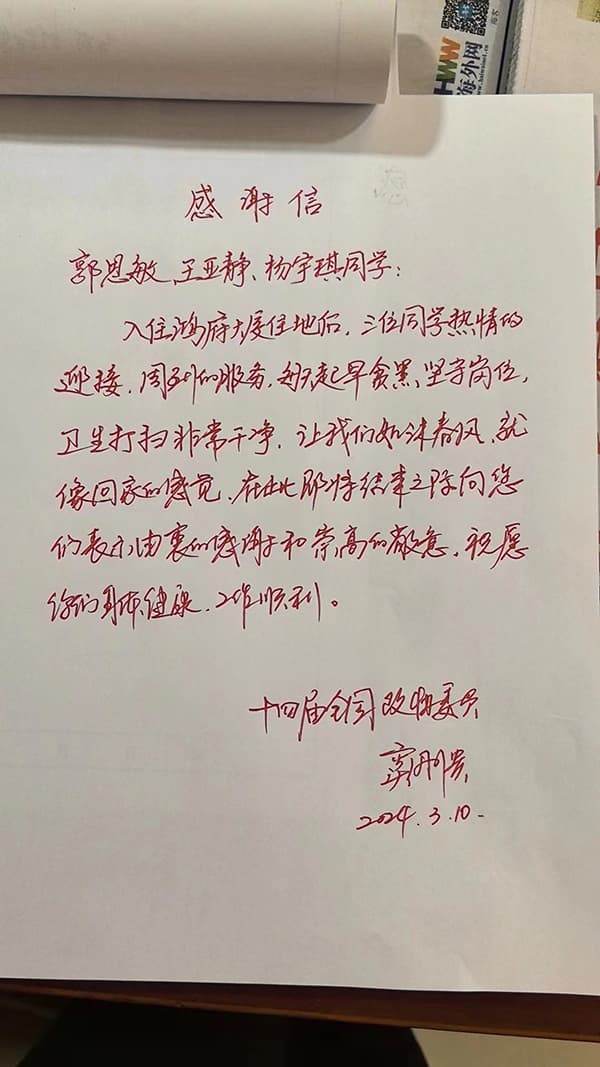 海客
HWW
海外网
www.haiwainet.cn
感谢信
郭思敏、王亚静、杨宇琪同学：
入住鸿府大厦住地后，三位同学热情的
迎接，周到的服务，每天起早贪黑，坚守岗位，
卫生打扫非常干净，让我们如沐春风，就
像回家的感觉，在此即将结束之际向您
们表示由衷的感谢和崇高的敬意，祝愿
你们身体健康，工作顺利。
十四届全国政协委员
窦荣贵
2024.3.10.